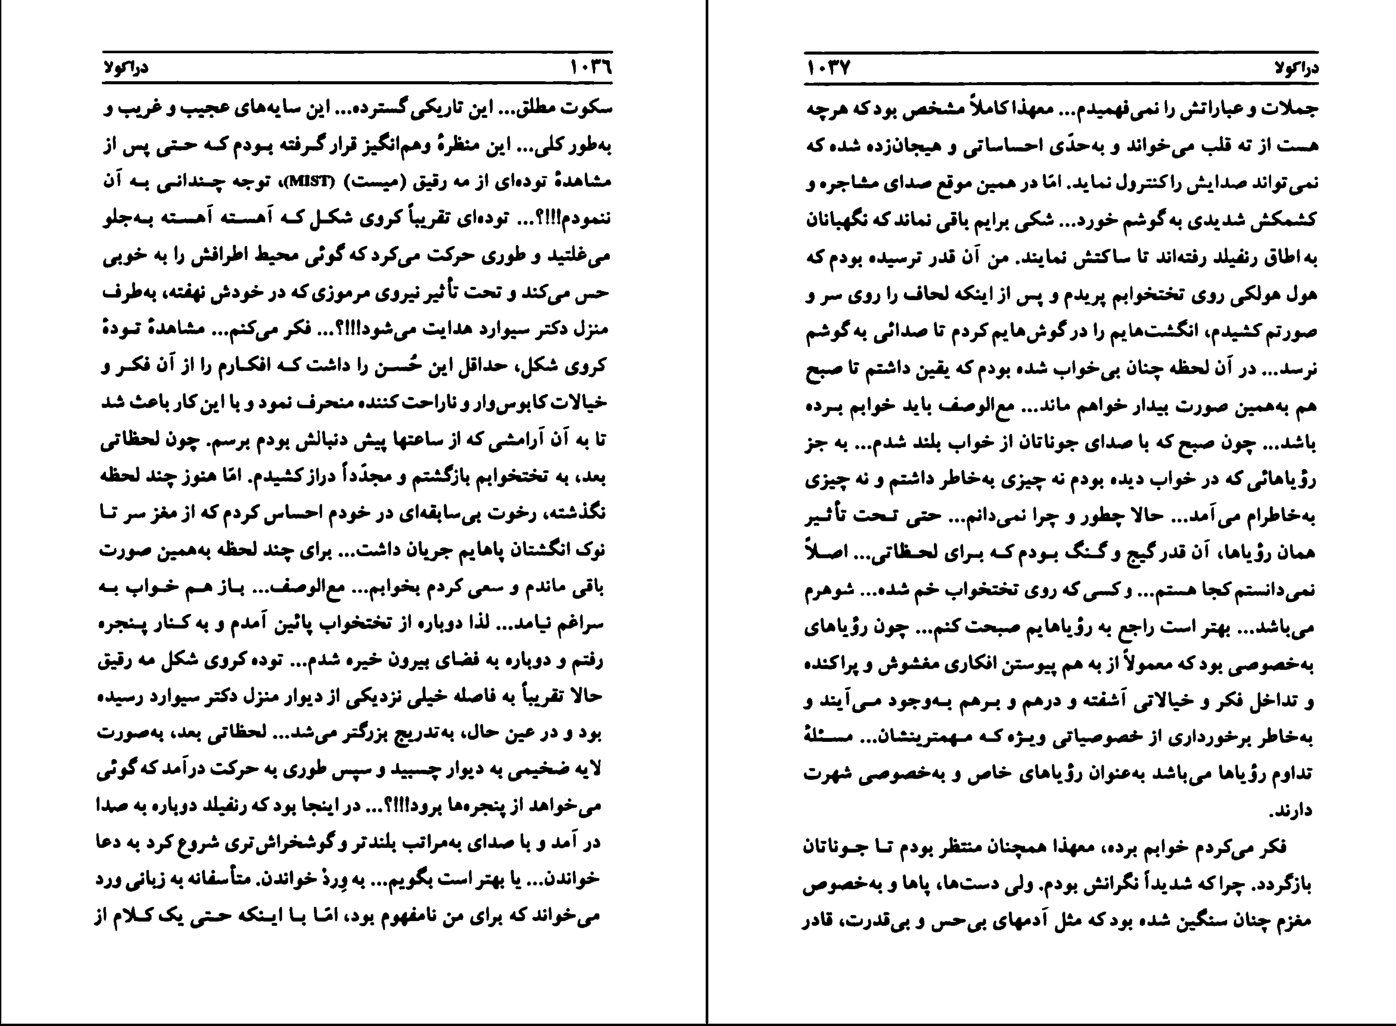 ۱۰۳٦ دراکولا
سکوت مطلق... این تاریکی گسترده... این سایه‌های عجیب و غریب و
به‌طور کلی... این منظرهٔ وهم‌انگیز قرار گرفته بودم که حتی پس از
مشاهدهٔ توده‌ای از مه رقیق (میست) (MIST)، توجه چندانی به آن
ننمودم!!!؟... توده‌ای تقریباً کروی شکل که آهسته آهسته به‌جلو
می‌غلتید و طوری حرکت می‌کرد که گوئی محیط اطرافش را به خوبی
حس می‌کند و تحت تأثیر نیروی مرموزی که در خودش نهفته، به‌طرف
منزل دکتر سیوارد هدایت می‌شود!!!؟... فکر می‌کنم... مشاهدهٔ تودهٔ
کروی شکل، حداقل این حُسن را داشت که افکارم را از آن فکر و
خیالات کابوس‌وار و ناراحت کننده منحرف نمود و با این کار باعث شد
تا به آن آرامشی که از ساعتها پیش دنبالش بودم برسم. چون لحظاتی
بعد، به تختخوابم بازگشتم و مجدّداً دراز کشیدم. امّا هنوز چند لحظه
نگذشته، رخوت بی‌سابقه‌ای در خودم احساس کردم که از مغز سر تا
نوک انگشتان پاهایم جریان داشت... برای چند لحظه به‌همین صورت
باقی ماندم و سعی کردم بخوابم... مع‌الوصف... باز هم خواب به
سراغم نیامد... لذا دوباره از تختخواب پائین آمدم و به کنار پنجره
رفتم و دوباره به فضای بیرون خیره شدم... توده کروی شکل مه رقیق
حالا تقریباً به فاصله خیلی نزدیکی از دیوار منزل دکتر سیوارد رسیده
بود و در عین حال، به‌تدریج بزرگتر می‌شد... لحظاتی بعد، به‌صورت
لایه ضخیمی به دیوار چسبید و سپس طوری به حرکت درآمد که گوئی
می‌خواهد از پنجره‌ها برود!!!؟... در اینجا بود که رنفیلد دوباره به صدا
در آمد و با صدای به‌مراتب بلندتر و گوشخراش‌تری شروع کرد به دعا
خواندن... یا بهتر است بگویم... به وِردْ خواندن. متأسفانه به زبانی ورد
می‌خواند که برای من نامفهوم بود، امّا با اینکه حتی یک کلام از
دراکولا ۱۰۳۷
جملات و عباراتش را نمی‌فهمیدم... معهذا کاملاً مشخص بود که هرچه
هست از ته قلب می‌خواند و به‌حدّی احساساتی و هیجان‌زده شده که
نمی‌تواند صدایش را کنترول نماید. امّا در همین موقع صدای مشاجره و
کشمکش شدیدی به گوشم خورد... شکی برایم باقی نماند که نگهبانان
به اطاق رنفیلد رفته‌اند تا ساکتش نمایند. من آن قدر ترسیده بودم که
هول هولکی روی تختخوابم پریدم و پس از اینکه لحاف را روی سر و
صورتم کشیدم، انگشت‌هایم را در گوش‌هایم کردم تا صدائی به گوشم
نرسد... در آن لحظه چنان بی‌خواب شده بودم که یقین داشتم تا صبح
هم به‌همین صورت بیدار خواهم ماند... مع‌الوصف باید خوابم برده
باشد... چون صبح که با صدای جوناتان از خواب بلند شدم... به جز
رؤیاهائی که در خواب دیده بودم نه چیزی به‌خاطر داشتم و نه چیزی
به‌خاطرام می‌آمد... حالا چطور و چرا نمی‌دانم... حتی تحت تأثیر
همان رؤیاها، آن قدر گیج و گنگ بودم که برای لحظاتی... اصلاً
نمی‌دانستم کجا هستم... و کسی که روی تختخواب خم شده... شوهرم
می‌باشد... بهتر است راجع به رؤیاهایم صبحت کنم... چون رؤیاهای
به‌خصوصی بود که معمولاً از به هم پیوستن افکاری مغشوش و پراکنده
و تداخل فکر و خیالاتی آشفته و درهم و برهم به‌وجود می‌آیند و
به‌خاطر برخورداری از خصوصیاتی ویژه که مهمترینشان... مسئلهٔ
تداوم رؤیاها می‌باشد به‌عنوان رؤیاهای خاص و به‌خصوصی شهرت
دارند.
فکر می‌کردم خوابم برده، معهذا همچنان منتظر بودم تا جوناتان
بازگردد. چرا که شدیداً نگرانش بودم. ولی دست‌ها، پاها و به‌خصوص
مغزم چنان سنگین شده بود که مثل آدمهای بی‌حس و بی‌قدرت، قادر